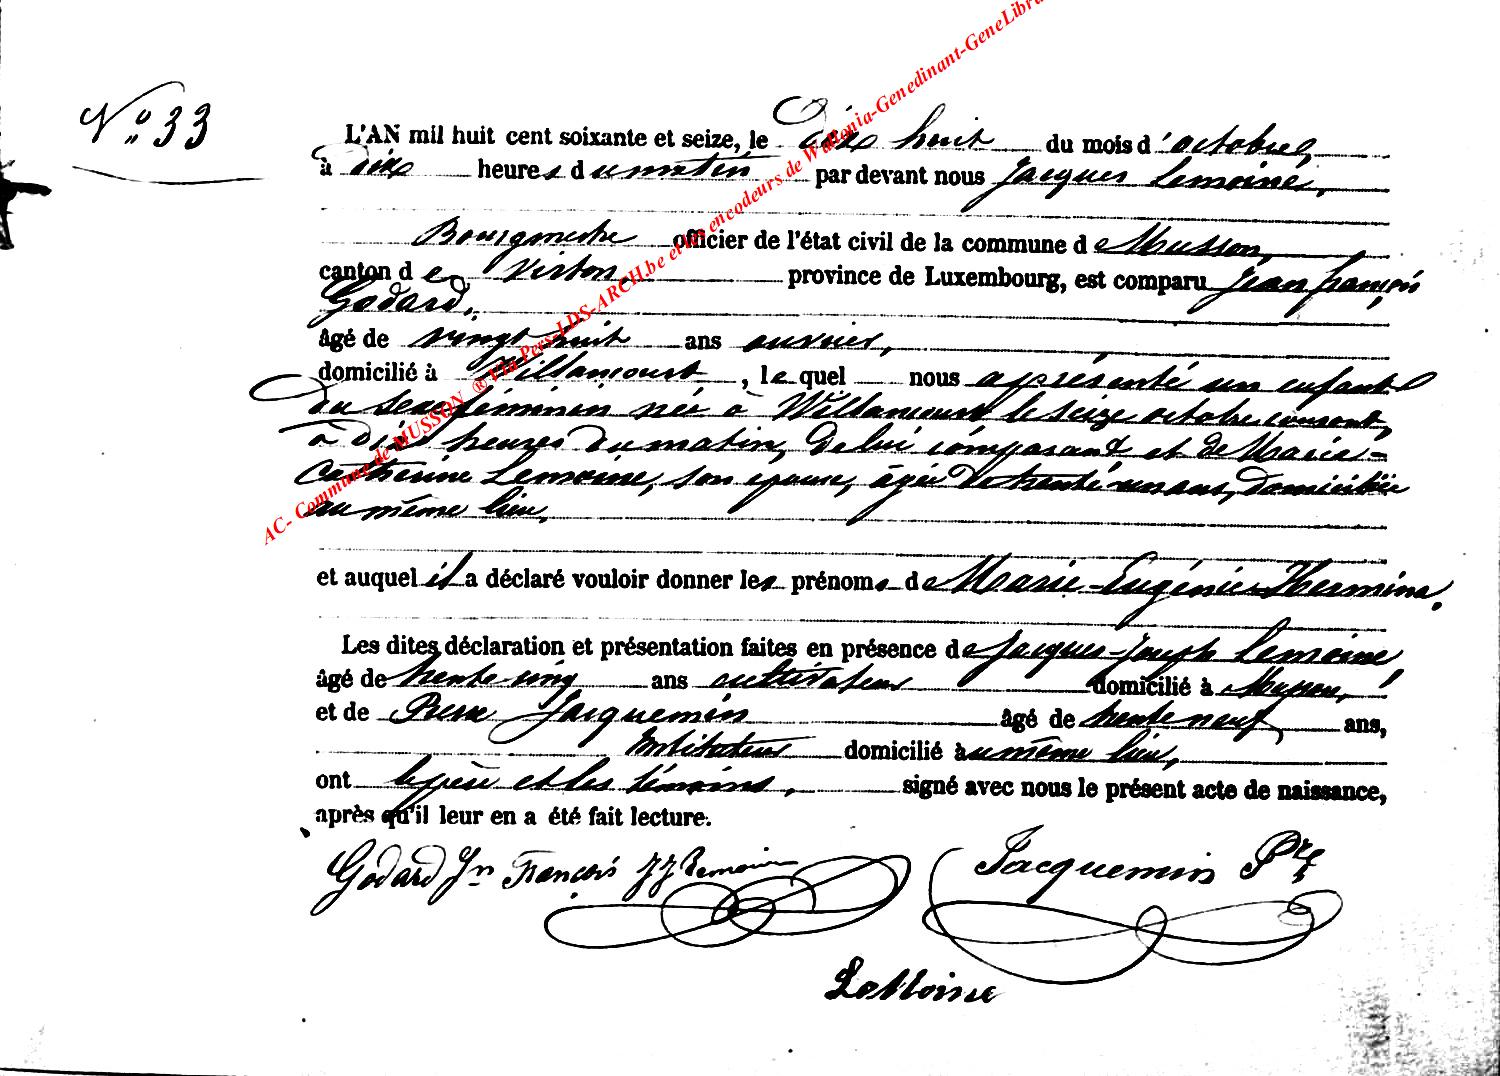 N° 33
L'AN mil huit cent soixante et seize, le dix huit du mois d'octobre,
à dix heures du matin par devant nous Jacques Lemoine,
Bourgmestre officier de l'état civil de la commune de Musson,
canton de Virton province de Luxembourg, est comparu Jean François
Godard,
âgé de vingt huit ans ouvrier,
domicilié à Willancourt, le quel nous a présenté un enfant
du sexe féminin née à Willancourt le seize octobre courant,
à dix heures du matin, de lui comparant et de Marie-
Catherine Lemoine, son epouse, âgée de trente un ans, domiciliée
au même lieu,
et auquel il a déclaré vouloir donner les prénoms de Marie-Eugénie Hermina.
Les dites déclaration et présentation faites en présence de Jacques-Joseph Lemoine,
âgé de trente cinq ans cultivateur domicilié à Musson,
et de Pierre Jacquemin âgé de trente neuf ans,
Instituteur domicilié au même lieu,
ont le père et les témoins, signé avec nous le présent acte de naissance,
après qu'il leur en a été fait lecture.
Godard Jn François JJ Lemoine Jacquemin Pre
LeMoine
AC- Commune de MUSSON ® via Pers-LDS-ARCH.be et les encodeurs de Wallonia-Genedinant-GeneLibra